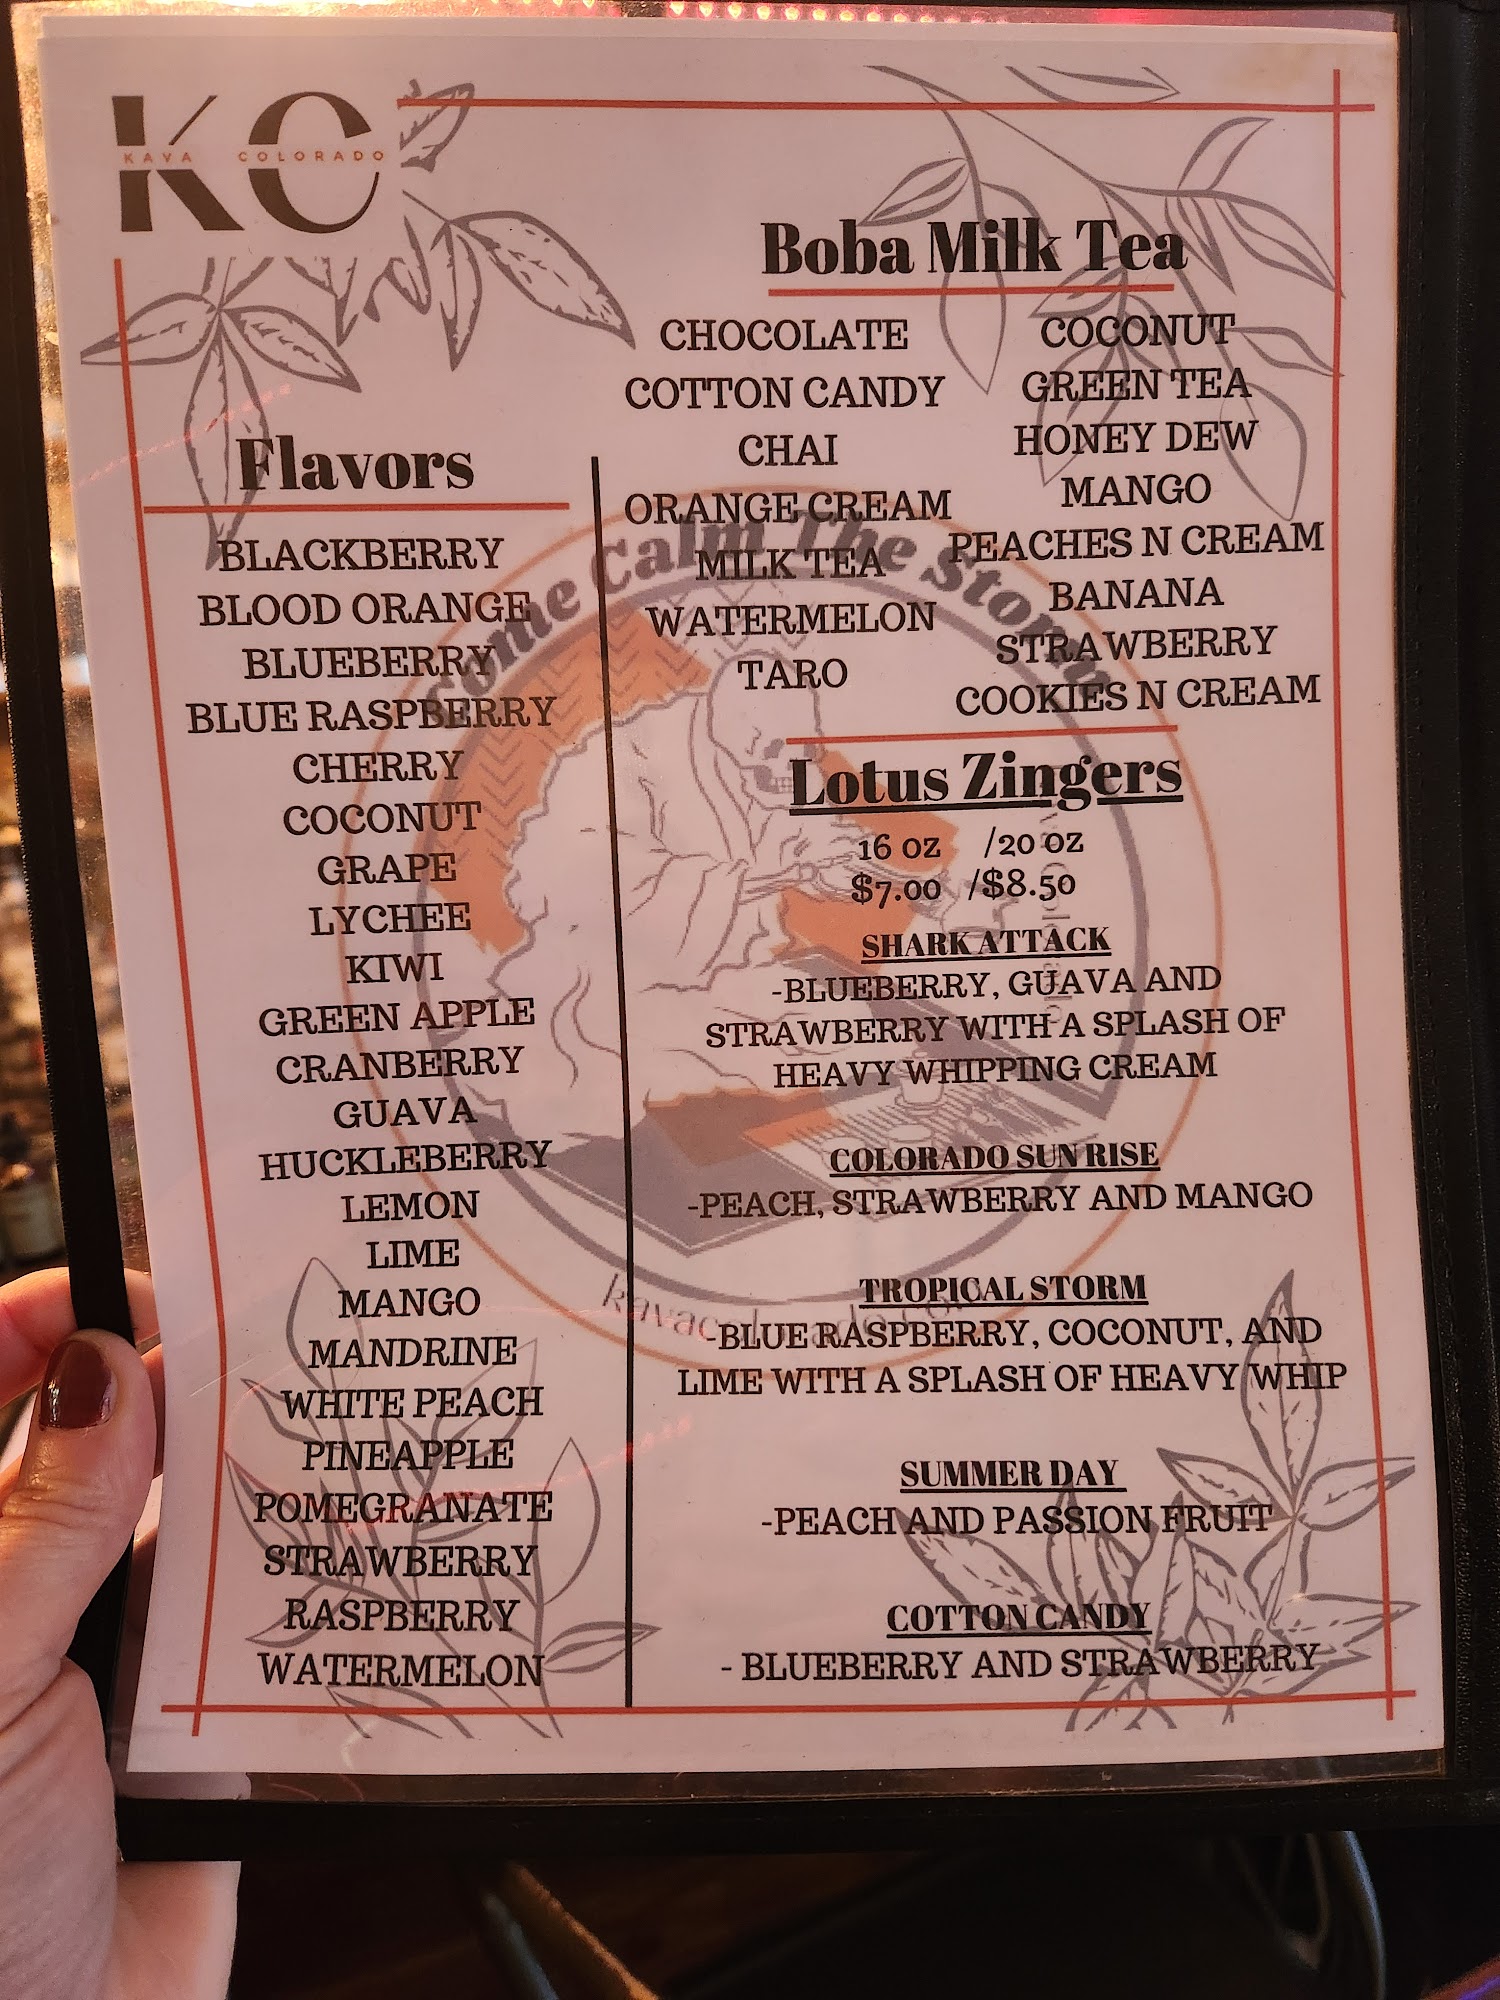 KC
KAVA COLORADO
Flavors
BLACKBERRY
BLOOD ORANGE
BLUEBERRY
BLUE RASPBERRY
CHERRY
COCONUT
GRAPE
LYCHEE
KIWI
GREEN APPLE
CRANBERRY
GUAVA
HUCKLEBERRY
LEMON
LIME
MANGO
MANDRINE
WHITE PEACH
PINEAPPLE
POMEGRANATE
STRAWBERRY
RASPBERRY
WATERMELON
Boba Milk Tea
CHOCOLATE
COTTON CANDY
CHAI
ORANGE CREAM
MILK TEA
WATERMELON
TARO
COCONUT
GREEN TEA
HONEY DEW
MANGO
PEACHES N CREAM
BANANA
STRAWBERRY
COOKIES N CREAM
Lotus Zingers
16 OZ /20 OZ
$7.00 /$8.50
SHARK ATTACK
-BLUEBERRY, GUAVA AND
STRAWBERRY WITH A SPLASH OF
HEAVY WHIPPING CREAM
COLORADO SUN RISE
-PEACH, STRAWBERRY AND MANGO
TROPICAL STORM
-BLUE RASPBERRY, COCONUT, AND
LIME WITH A SPLASH OF HEAVY WHIP
SUMMER DAY
-PEACH AND PASSION FRUIT
COTTON CANDY
- BLUEBERRY AND STRAWBERRY
Come Calm The Storm